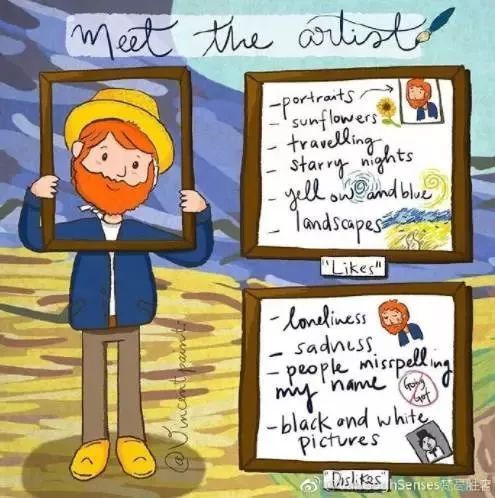 Meet the artist
-portraits
- sunflowers
- travelling
- starry nights
- yellow and blue
- landscapes
"Likes"
- loneliness
- sadness
- people misspelling
my name
Going
Got
-black and white
pictures
"Dislikes"
@Vincentpaints